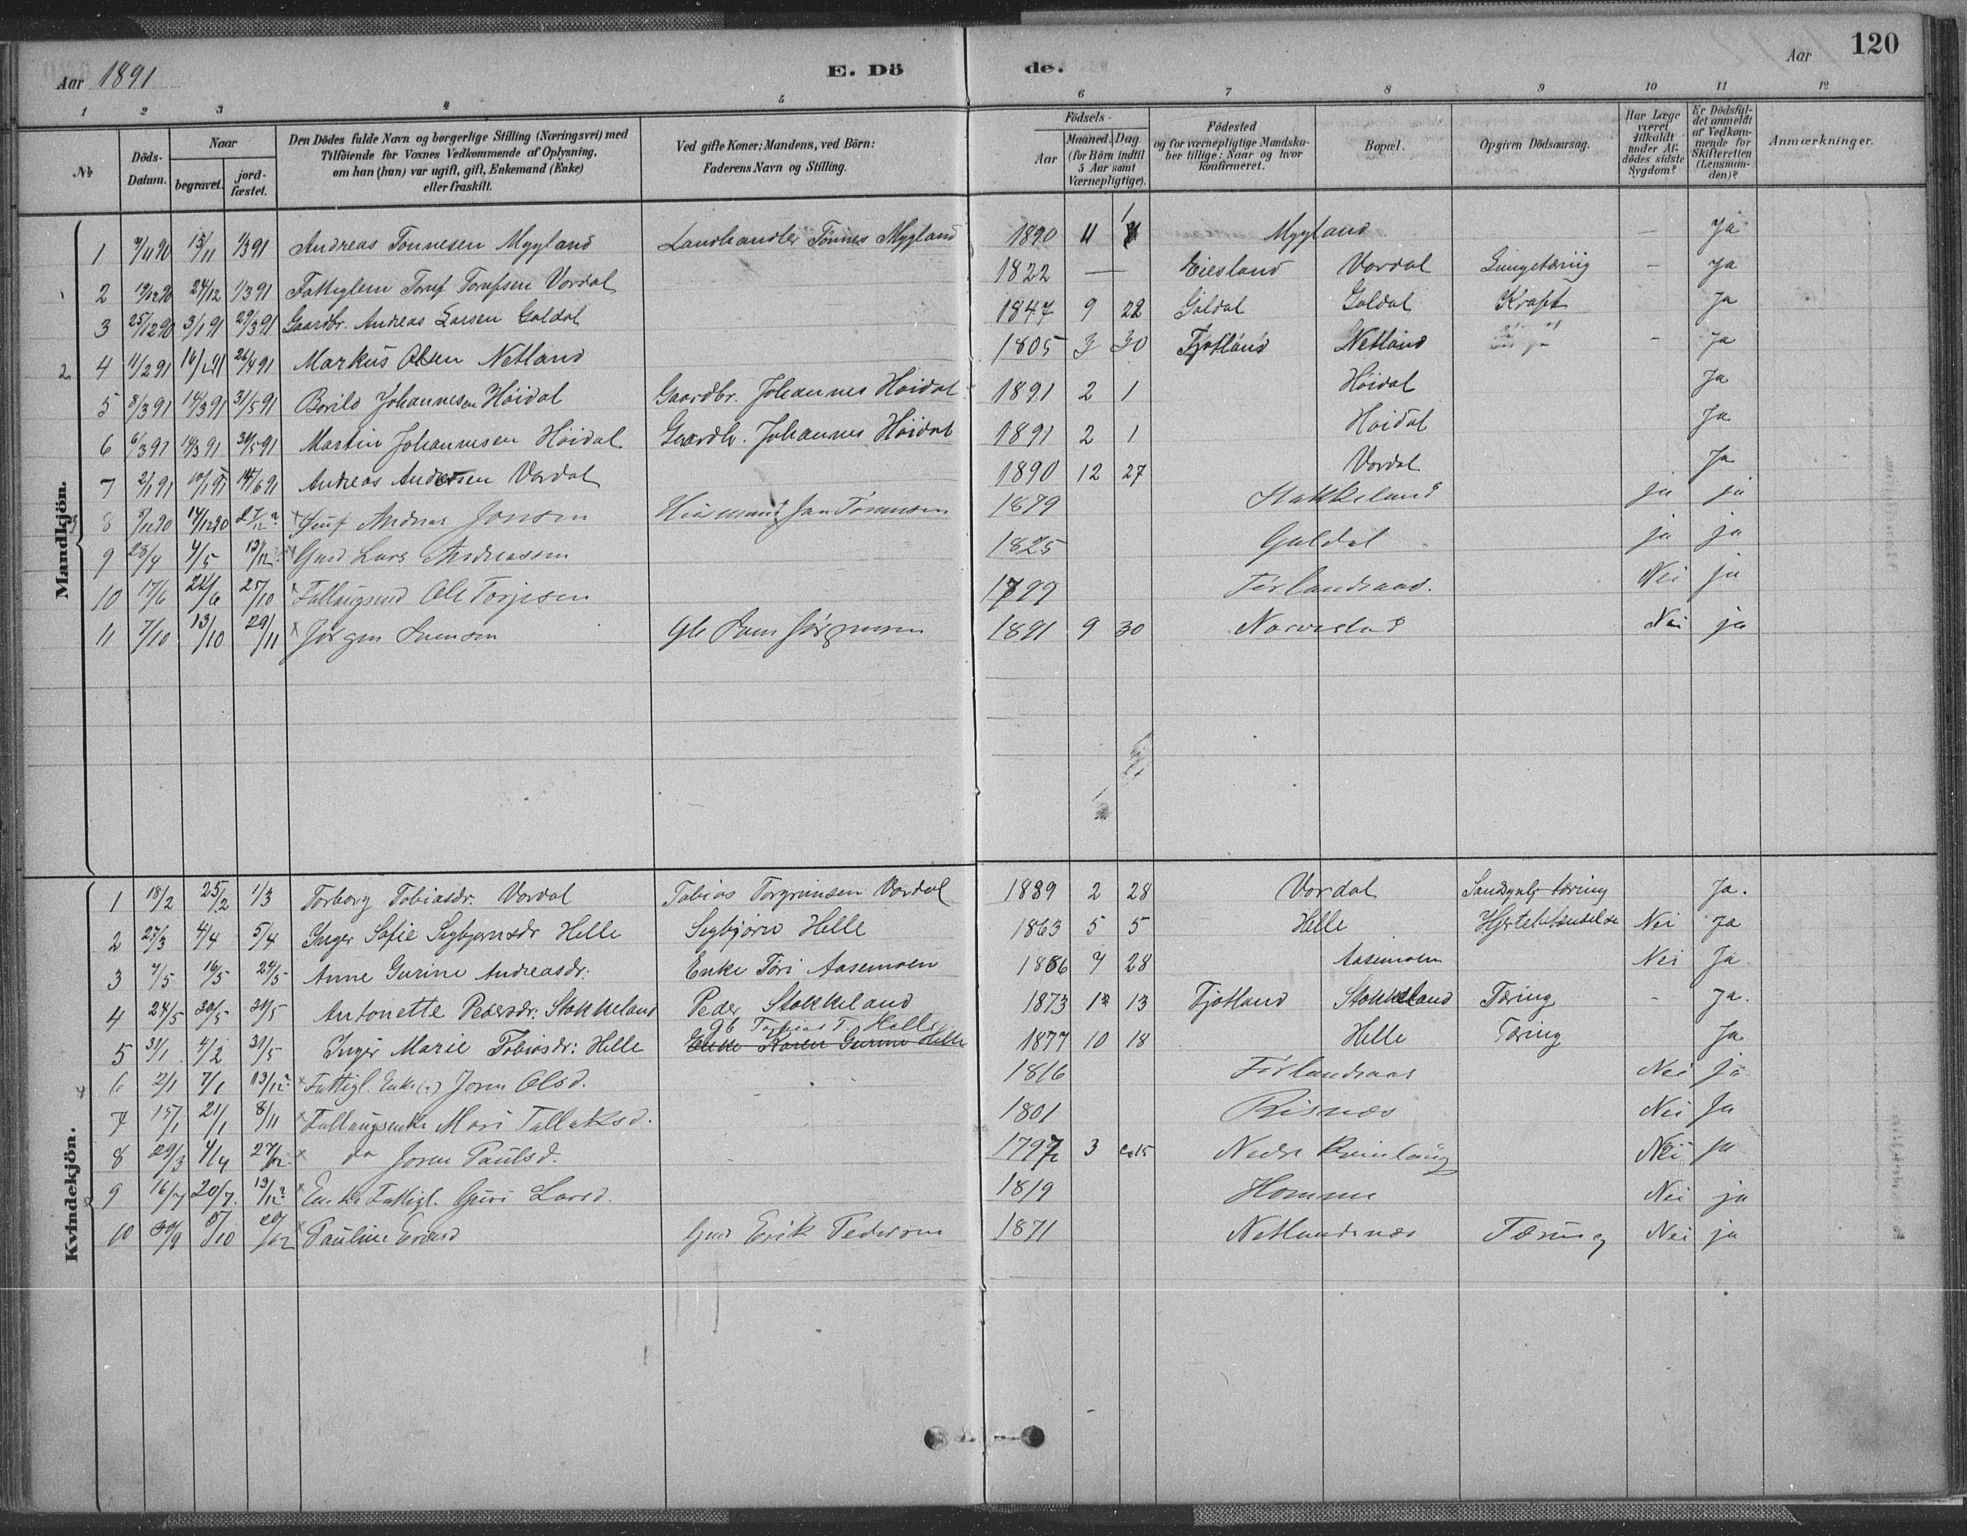 Aar 1891 E. Dö de. Aar 120
1 2 3 4 5 6 7 8 9 10 11 12
No Döds-Datum. Naar begravet. jordfæstet. Den Dödes fulde Navn og borgerlige Stilling (Næringsvei) med Tilföiende for Voxnes Vedkommende af Oplysning, om han (hun) var ugift, gift, Enkemand (Enke) eller fraskilt. Ved gifte Koner: Mandens, ved Börn: Faderens Navn og Stilling. Födsels- Aar Maaned. Dag. (for Börn indtil 5 Aar samt Værnepligtige). Födested og for værnepligtige Mandskaber tillige: Naar og hvor Konfirmeret. Bopæl. Opgiven Dödsaarsag. Har Læge været tilkaldt under Afdödes sidste Sygdom? Er Dödsfaldet anmeldt af Vedkommende for Skifteretten (Lensmanden)? Anmærkninger.
Mandkjön.
1 9/11 90 15/11 1/3 91 Andreas Tönnesen Mygland Landhandler Tönnes Mygland 1890 11 1 Mygland — Ja
2 19/12 90 24/12 1/3 91 Fattiglem Toruf Torufsen Vordal 1822 — Eiesland Vordal Lungetæring — Ja
3 25/12 90 3/1 91 29/3 91 Gaardbr. Andreas Larsen Galdal 1847 9 22 Galdal Galdal Kræft Ja
4 4/2 91 26/4 91 Markus Olsen Netland 1805 3 30 Fjotland Netland — Ja
5 8/3 91 14/3 91 31/5 91 Borild Johannesen Höidal Gaardbr. Johannes Höidal 1891 2 1 Höidal Ja
6 6/3 91 14/3 91 31/5 91 Martin Johannesen Höidal Gaardbr. Johannes Höidal 1891 2 1 Höidal Ja
7 2/1 91 10/1 91 14/6 91 Andreas Andersen Vordal 1890 12 27 Vordal Ja
8 14/12 90 Andreas Jonsen Jan Tönnesen 1879 Stakkeland ja ja
9 28/4 4/5 13/12 Gmd Lars Andreassen 1825 Galdal ja ja
10 17/6 24/6 25/10 Ole Torjesen 1799 Förlandsaas. Nei ja
11 7/10 13/10 29/11 Jörgen Svensen Svens Jörgensen 1891 9 30 Narvestad Nei ja
Kvindekjön.
1 18/2 25/2 1/3 Torborg Tobiasdr. Vordal Tobias Torgrimsen Vordal 1889 2 28 Vordal Ja.
2 27/3 4/4 5/4 Inger Sofie Segbjørnsdr Helle Segbjørn Helle 1863 5 5 Helle Hjertebetændelse Nei Ja
3 7/5 16/5 24/5 Anne Gurine Andreasdr: Enke Töri Aasemoen 1886 7 28 Aasemoen Nei Ja
4 24/5 30/5 31/5 Antonette Pedersdr: Stokkeland Peder Stokkeland 1873 12 13 Fjotland Stokkeland Tæring - Ja.
5 31/1 4/2 31/5 Inger Marie Tobiasdr: Helle Gb Tobias T. Helle Enke Karen Gurine Helle 1877 10 18 Helle Tæring Ja
6 2/1 7/1 13/12 Fattigl. Enke Joren Olsd. 1816 Förlandsaas Nei Ja
7 15/1 21/1 8/11 Mari Tallaksd. 1801 Risnæs Nei Ja
8 29/3 4/4 27/12 do Joren Paulsd. 1797 3 15 Nedre Nei ja
9 16/7 20/7. 13/12 Enke Fattigl. Guri Larsd. 1819 Homme Nei ja
10 30/9 5/10 Pauline Gmd Erik Pedersen 1871 Netlandsnæs Tæring Nei ja